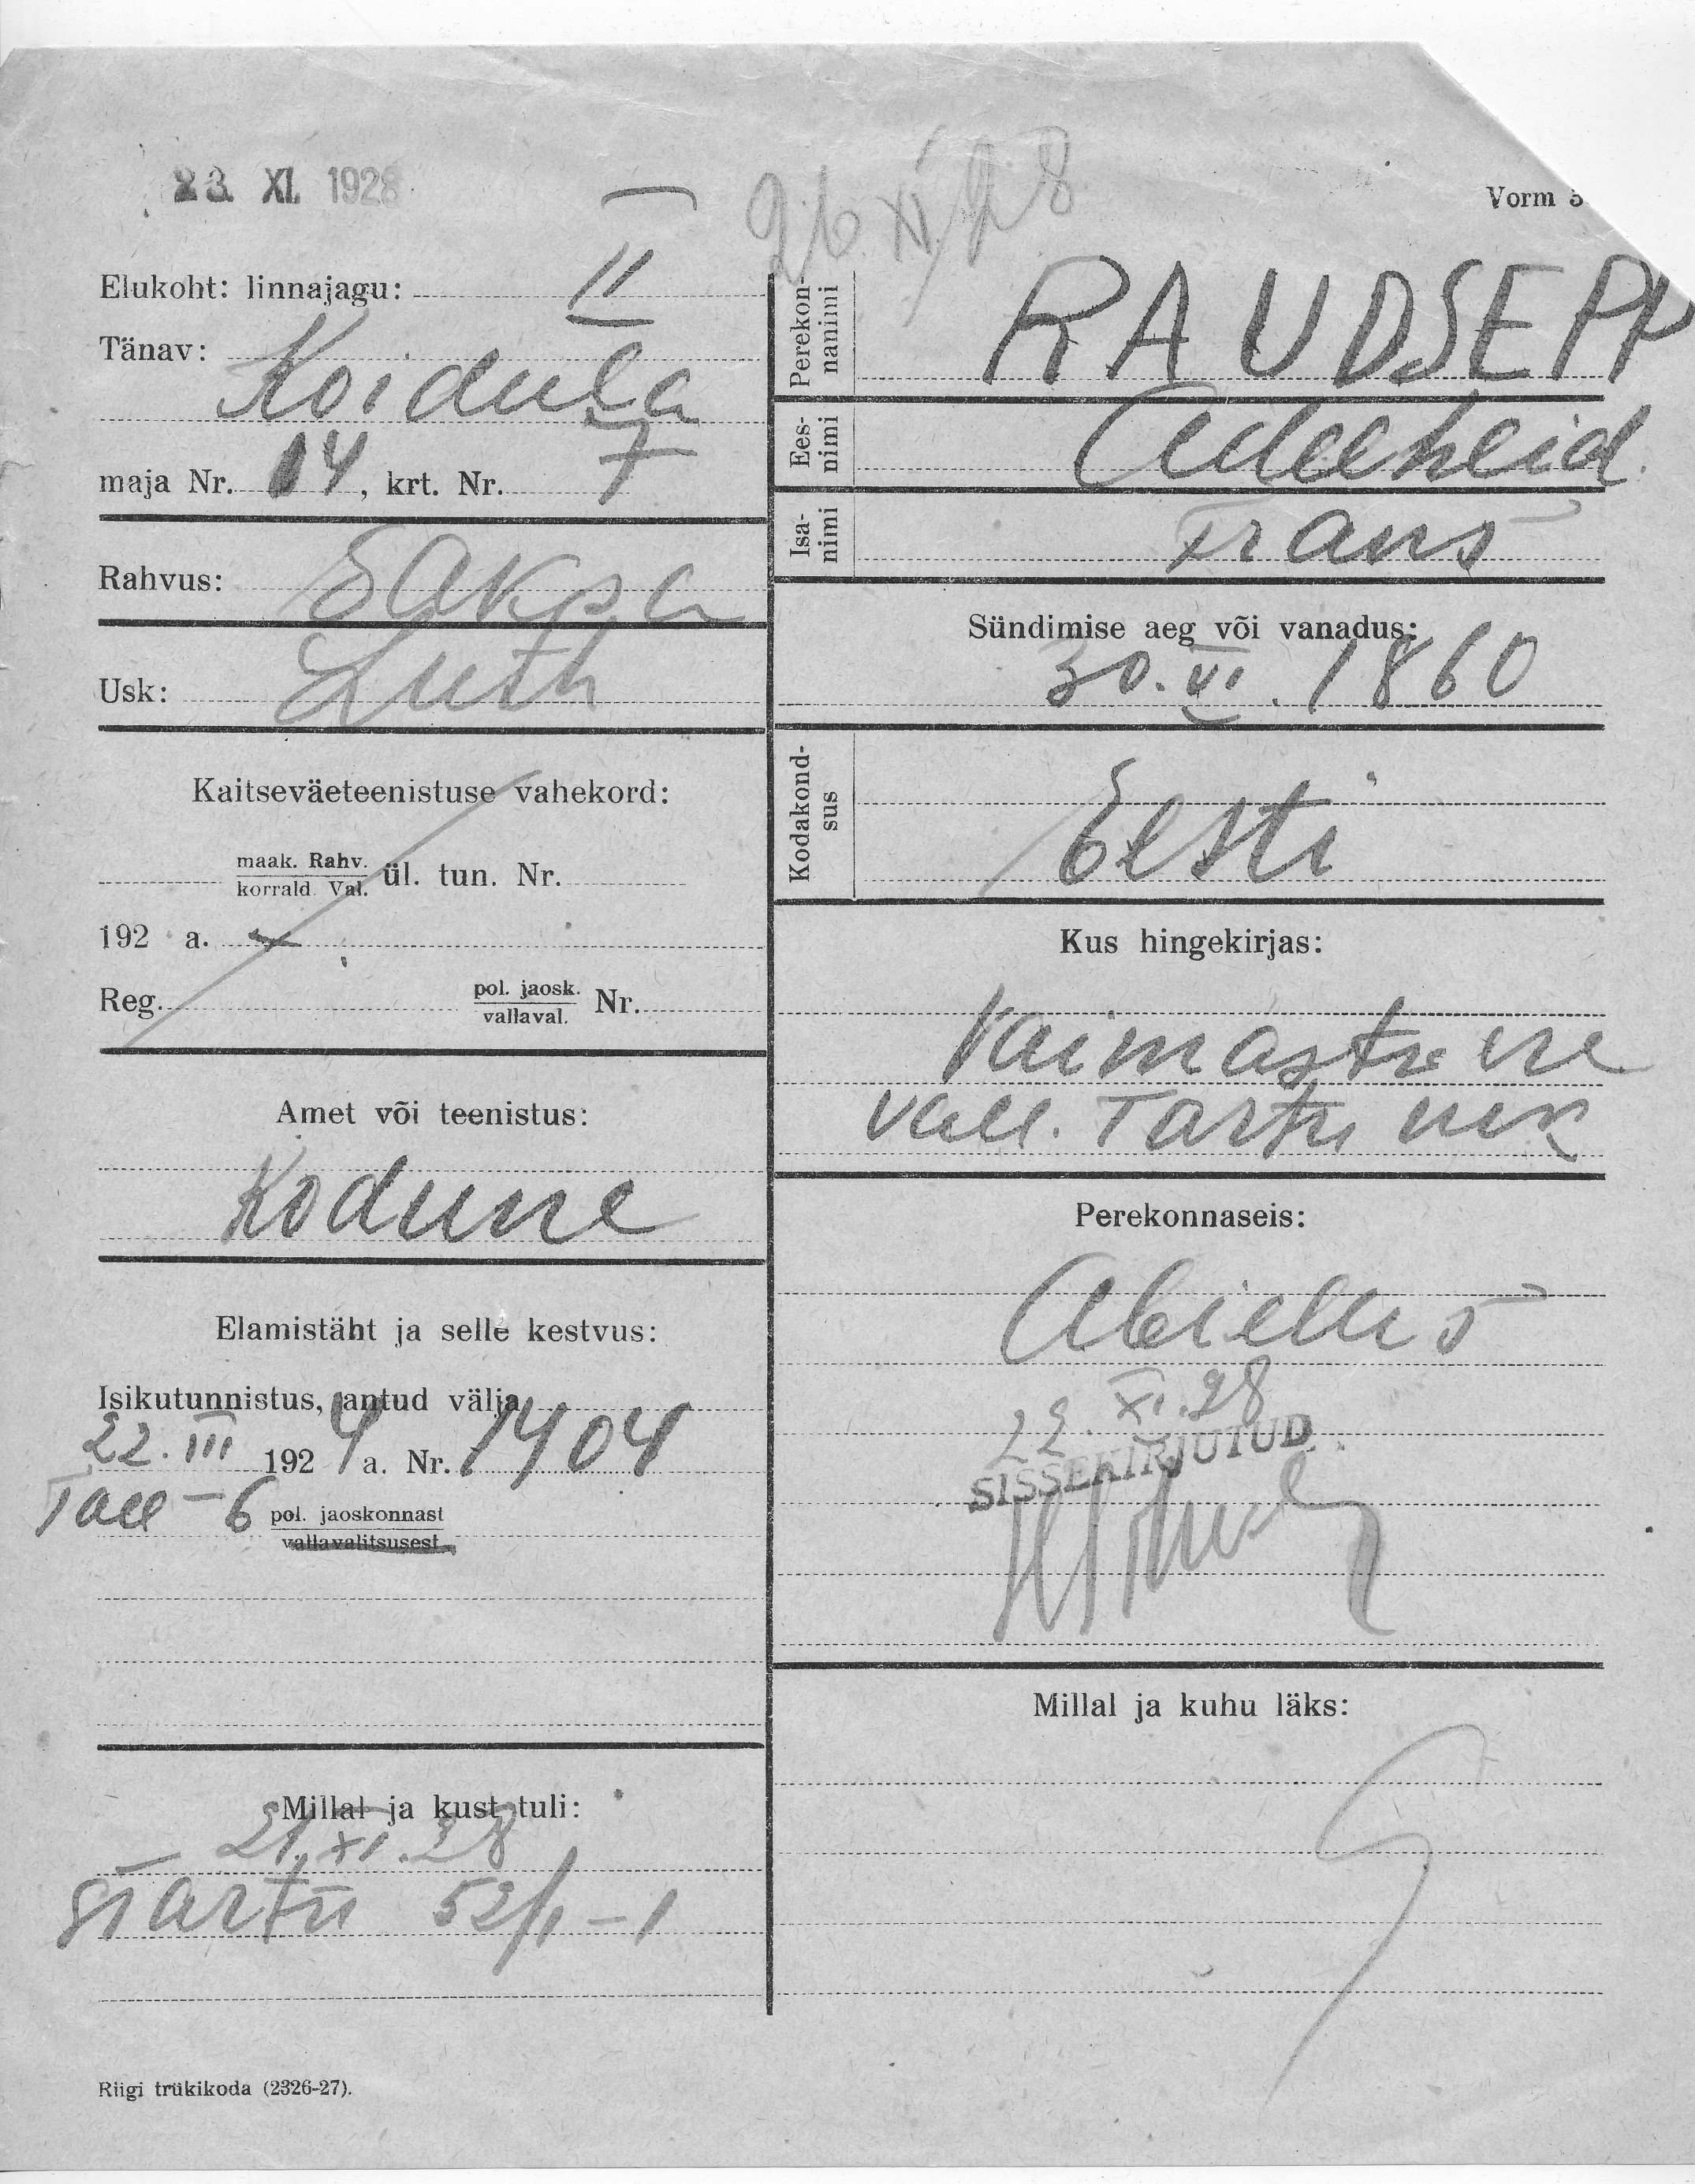 23. XI. 1928
26 XI 28
Vorm
Elukoht: linnajagu: II
Tänav:
Koidula
maja Nr. 14, krt. Nr. 7
Rahvus: Saksa
Usk: Luth
Kaitseväeteenistuse vahekord:
maak. Rahv.
korrald. Val. ül. tun. Nr.
192 a.
Reg. pol. jaosk.
vallaval. Nr.
Amet või teenistus:
Kodune
Elamistäht ja selle kestvus:
Isikutunnistus, antud välja
22. III 1924 a. Nr. 1404
Tall-6 pol. jaoskonnast
vallavalitsusest
Millal ja kust tuli:
21. XI. 28
52/1-1
Riigi trükikoda (2326-27).
Perekon-
nanimi
RAUDSEPP
Ees-
nimi
Adelheid
Isa-
nimi
Frans
Sündimise aeg või vanadus:
30. VI. 1860
Kodakond-
sus
Eesti
Kus hingekirjas:
Vaimastvere
vall. Tartu mk
Perekonnaseis:
Abielus
22. XI. 28
SISSEKIRJUTUD
Millal ja kuhu läks: